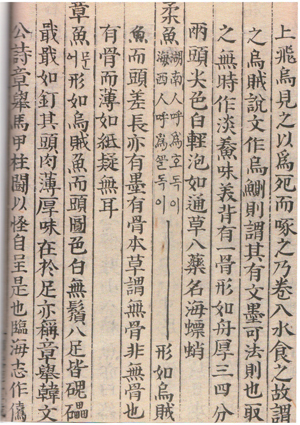 上飛烏見之以爲死而啄之乃卷入水食之故謂
之烏賊說文作烏鰂則謂其有文墨可法則也取
之無時作淡鮝味美背有一骨形如舟厚三四分
兩頭尖色白輕泡如通草入藥名海螵蛸
柔魚 湖南人呼爲호독이 海西人呼爲ᄭᅩᆯ독이 形如烏賊
魚而頭差長亦有墨有骨本草謂無骨非無骨也
有骨而薄如紙擬無耳
章魚 문어 形如烏賊魚而頭圓色白無鬚八足皆磈礧
戢戢如釘其頭肉薄厚味在於足亦稱章舉韓文
公詩章舉馬甲柱鬭以怪自呈是也臨海志作僞